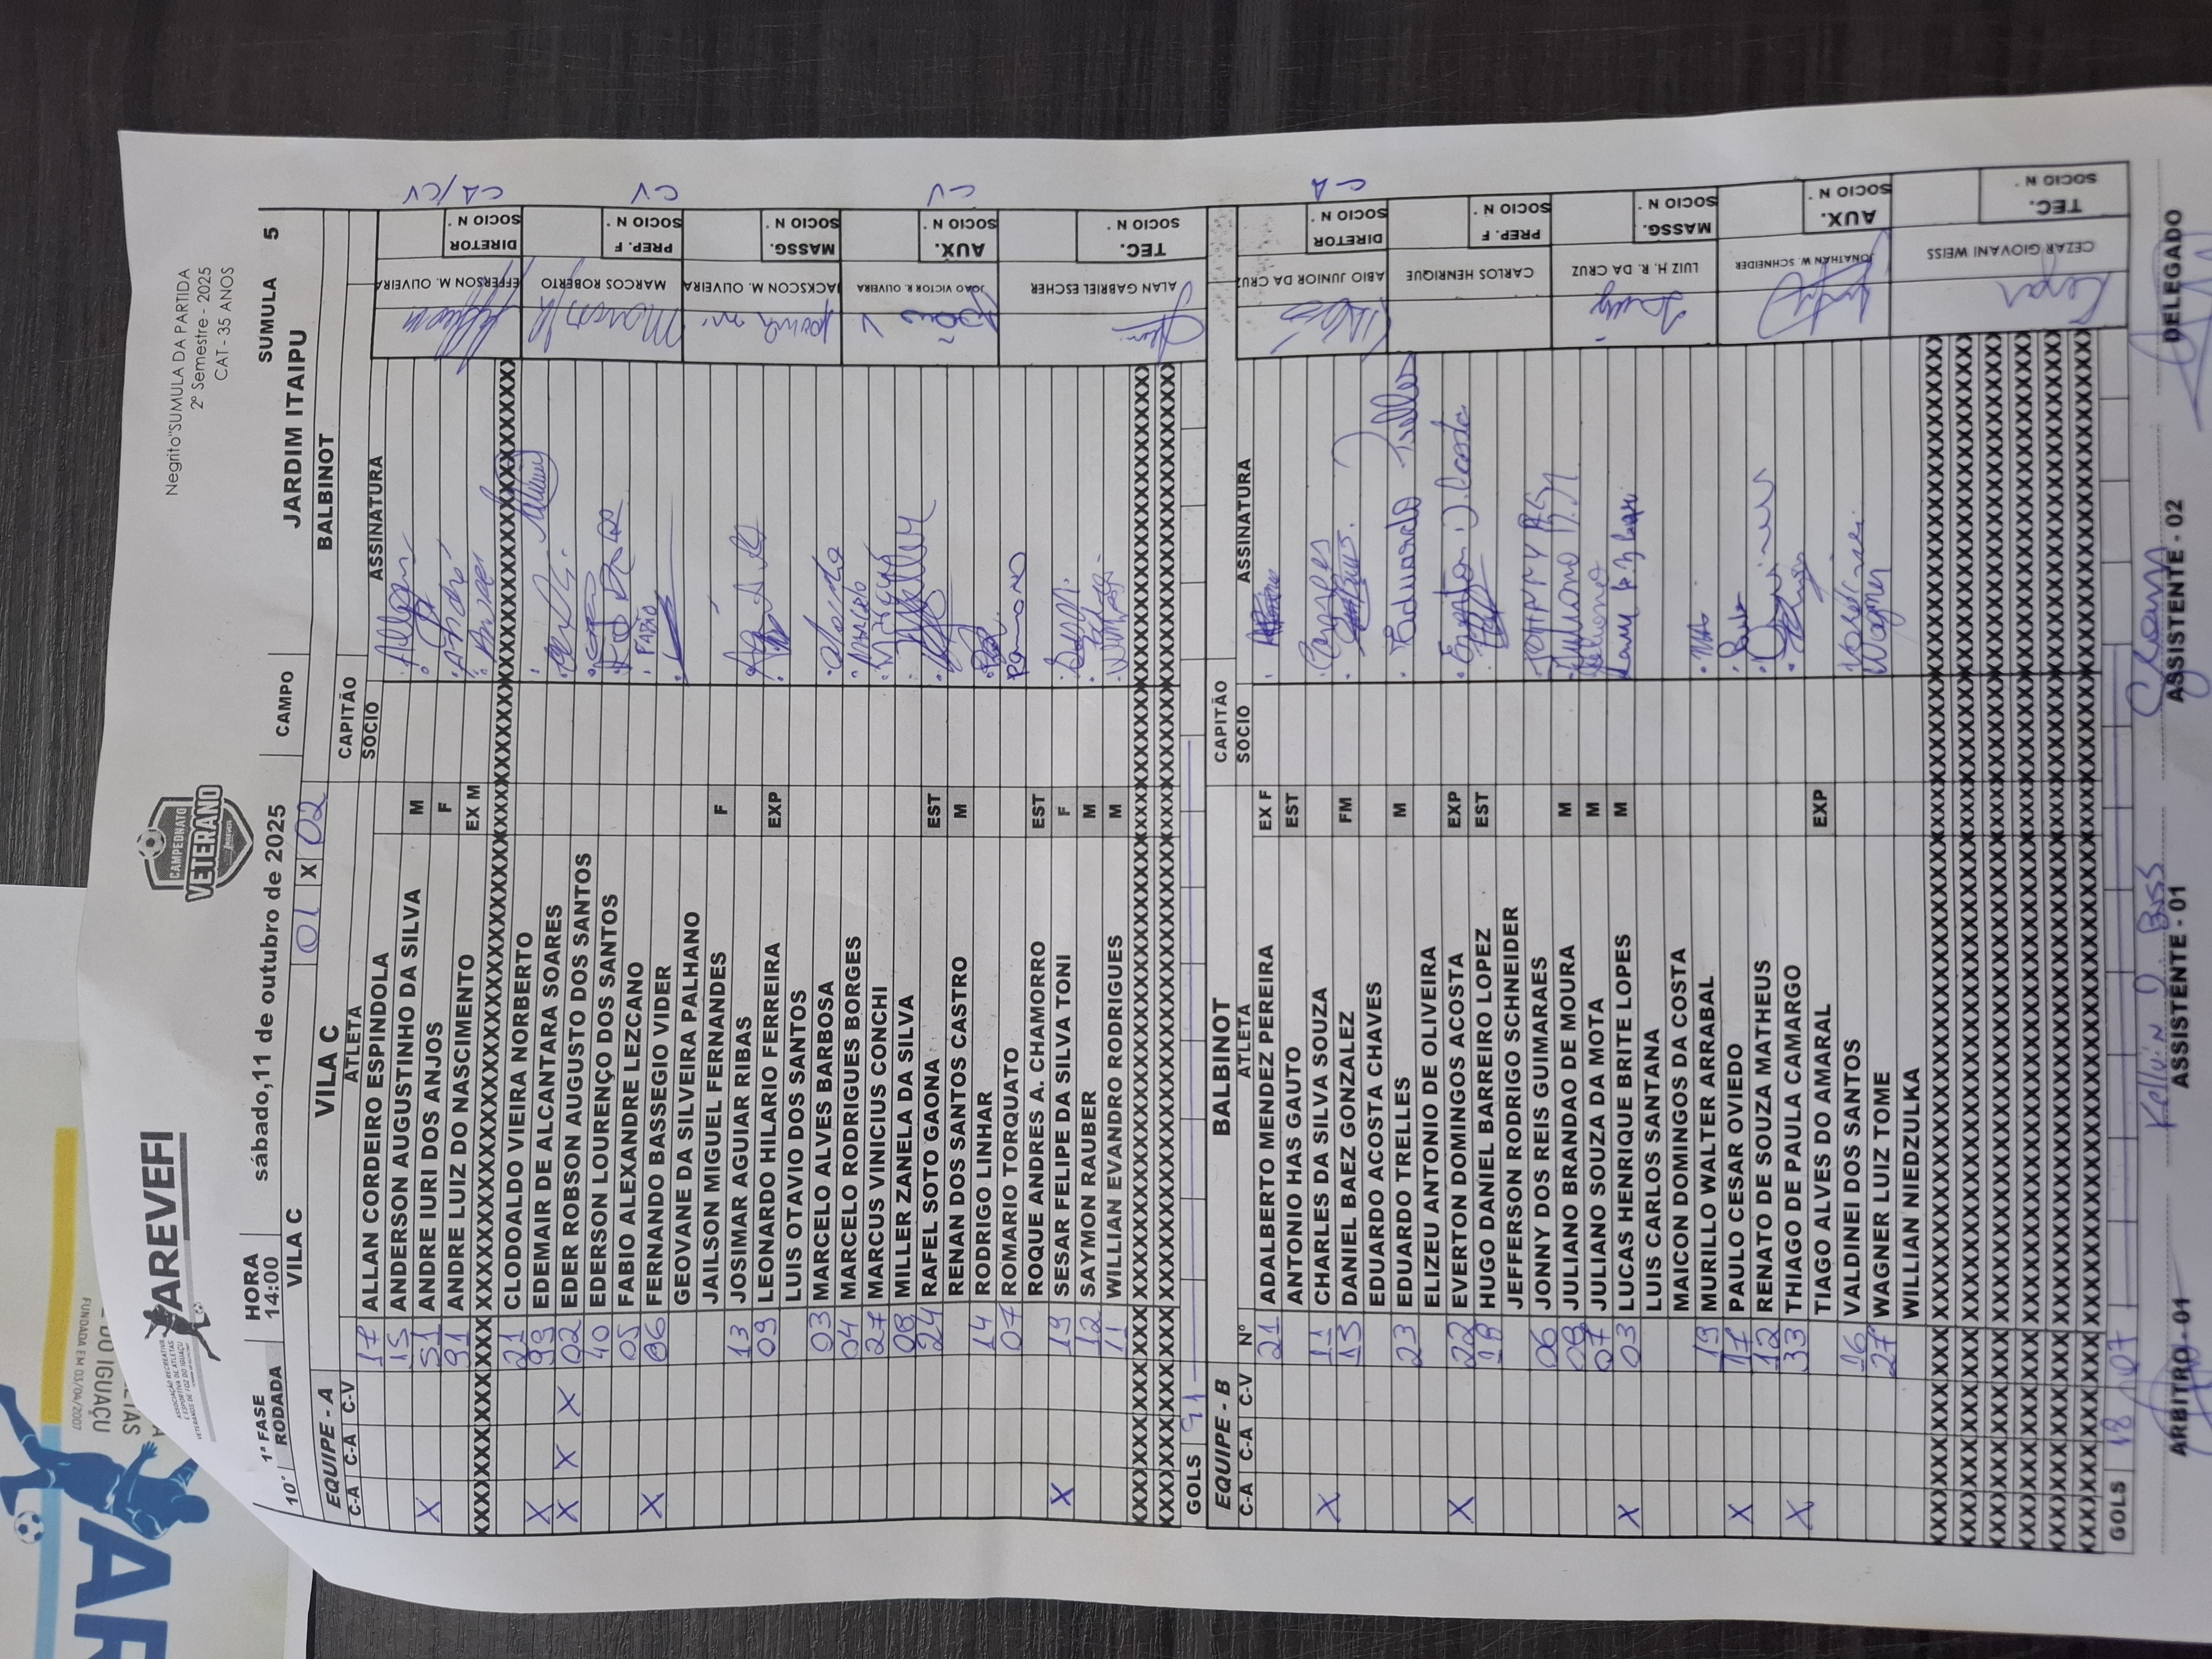 AREVEFI
ASSOCIAÇÃO RECREATIVA
E ESPORTIVA DE ATLETAS
VETERANOS DE FOZ DO IGUAÇU
CAMPEONATO
VETERANO
Negrito"SUMULA DA PARTIDA
2º Semestre - 2025
CAT - 35 ANOS
1ª FASE HORA sábado,11 de outubro de 2025 SUMULA 5
10° RODADA 14:00 CAMPO JARDIM ITAIPU
VILA C 01 X 02 BALBINOT
EQUIPE - A VILA C CAPITÃO
C-A C-A C-V ATLETA SOCIO ASSINATURA
17 ALLAN CORDEIRO ESPINDOLA Allan
15 ANDERSON AUGUSTINHO DA SILVA
X 51 ANDRE IURI DOS ANJOS M André
91 ANDRE LUIZ DO NASCIMENTO F
EX M
21 CLODOALDO VIEIRA NORBERTO
X 99 EDEMAIR DE ALCANTARA SOARES
X X X 02 EDER ROBSON AUGUSTO DOS SANTOS
40 EDERSON LOURENÇO DOS SANTOS
05 FABIO ALEXANDRE LEZCANO FABIO
X 06 FERNANDO BASSEGIO VIDER
GEOVANE DA SILVEIRA PALHANO
JAILSON MIGUEL FERNANDES F
13 JOSIMAR AGUIAR RIBAS
09 LEONARDO HILARIO FERREIRA EXP
LUIS OTAVIO DOS SANTOS
03 MARCELO ALVES BARBOSA
04 MARCELO RODRIGUES BORGES Marcelo
27 MARCUS VINICIUS CONCHI
08 MILLER ZANELA DA SILVA
24 RAFEL SOTO GAONA EST
RENAN DOS SANTOS CASTRO M
14 RODRIGO LINHAR
07 ROMARIO TORQUATO ROMARIO
ROQUE ANDRES A. CHAMORRO EST
X 19 SESAR FELIPE DA SILVA TONI F
12 SAYMON RAUBER M
11 WILLIAN EVANDRO RODRIGUES M
GOLS 91
EFFERSON M. OLIVEIRA DIRETOR SOCIO N° CA/CV
MARCOS ROBERTO PREP. F SOCIO N° CV
JACKSCON M. OLIVEIRA MASSG. SOCIO N°
JOÃO VICTOR R. OLIVEIRA AUX. SOCIO N° CV
ALAN GABRIEL ESCHER TEC. SOCIO N°
EQUIPE - B BALBINOT CAPITÃO
C-A C-A C-V Nº ATLETA SOCIO ASSINATURA
21 ADALBERTO MENDEZ PEREIRA EX F
ANTONIO HAS GAUTO EST
X 11 CHARLES DA SILVA SOUZA
13 DANIEL BAEZ GONZALEZ FM
EDUARDO ACOSTA CHAVES
23 EDUARDO TRELLES M Eduardo Trelles
ELIZEU ANTONIO DE OLIVEIRA
X 22 EVERTON DOMINGOS ACOSTA EXP Everton D. Acosta
HUGO DANIEL BARREIRO LOPEZ EST
JEFFERSON RODRIGO SCHNEIDER
06 JONNY DOS REIS GUIMARAES
08 JULIANO BRANDAO DE MOURA M Juliano
07 JULIANO SOUZA DA MOTA M Juliano
X 03 LUCAS HENRIQUE BRITE LOPES M
LUIS CARLOS SANTANA
MAICON DOMINGOS DA COSTA
19 MURILLO WALTER ARRABAL
X 17 PAULO CESAR OVIEDO
12 RENATO DE SOUZA MATHEUS
X 33 THIAGO DE PAULA CAMARGO
TIAGO ALVES DO AMARAL EXP
16 VALDINEI DOS SANTOS
27 WAGNER LUIZ TOME Wagner
WILLIAN NIEDZULKA
GOLS 18 07
ABIO JUNIOR DA CRUZ DIRETOR SOCIO N° CA
CARLOS HENRIQUE PREP. F SOCIO N°
LUIZ H. R. DA CRUZ MASSG. SOCIO N°
JONATHAN W. SCHNEIDER AUX. SOCIO N°
CEZAR GIOVANI WEISS TEC. SOCIO N° Cezar
ARBITRO - 01 ASSISTENTE - 01 ASSISTENTE - 02 DELEGADO
DO IGUAÇU
FUNDADA EM 03/04/2007